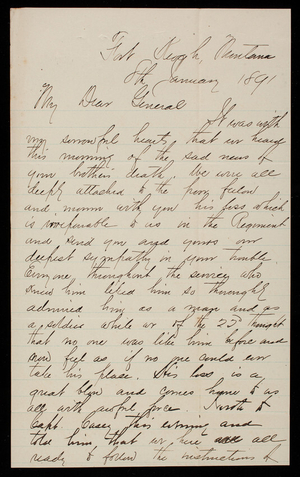 Fort Keogh, Montana
8th January 1891
My Dear General
It was with
my sorrowful hearts that we heard
this morning of the sad news of
your brother's death. We were all
deeply attached to the poor fellow
and mourn with you his loss which
is irreparable to us in the Regiment
and send you and yours our
deepest sympathy in your trouble.
Everyone throughout the service who
knew him liked him so thoroughly
admired him as a man and as
a soldier while we of the 22d thought
that no one was like him before and
now feel as if no one could ever
take his place. His loss is a
great blow and comes home to us
all with awful force. I wrote to
Capt. Casey this evening and
told him that we here are all
ready to follow the instructions of